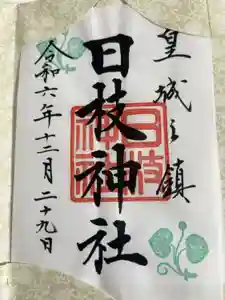 皇城之鎮
日枝神社
日枝神社
令和六年十二月二十九日